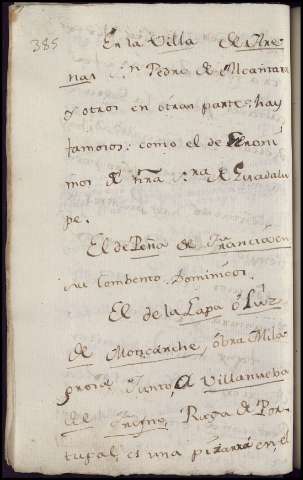 385
En la Villa de Are-
nas Sn Pedro de Alcantara
y otros en otras partes, hay
famosos: como el de Geroni
mos de ñra Sra de Guadalu
pe.
El de Peña de Francia en
su Combento Dominicos.
El de la Lapa ó Luz
de Moncarche, óbra Mila
grosa, Junto, á Villanueba
del Fresno, Raya de Por-
tugal, es una pizarra en el